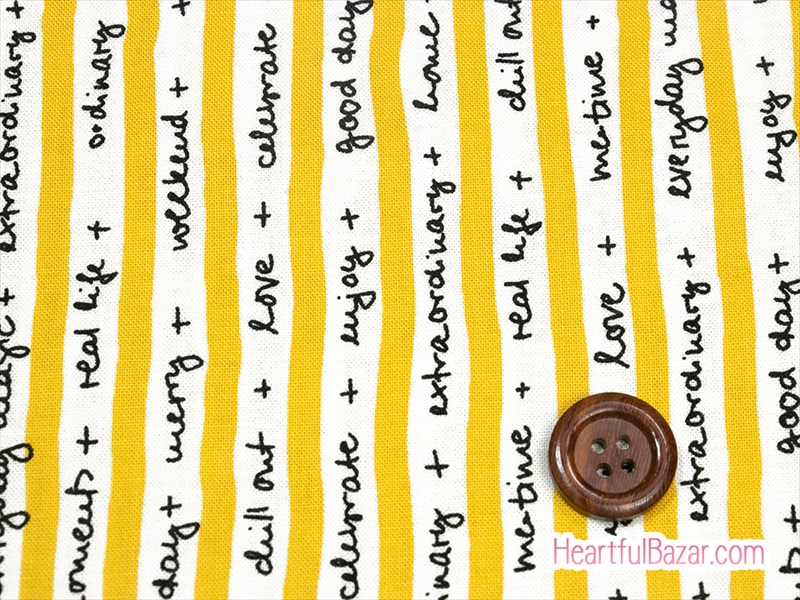 extraordinary +
everyday magic +
ordinary
moments + real life +
day + merry + weekend +
chill out + love + celebrate
celebrate + enjoy + good day
inary + extraordinary + home
me-time + real life + chill out
+ love + me-time +
+ extraordinary + everyday ma
ts + good day + enjoy +
HeartfulBazar.com